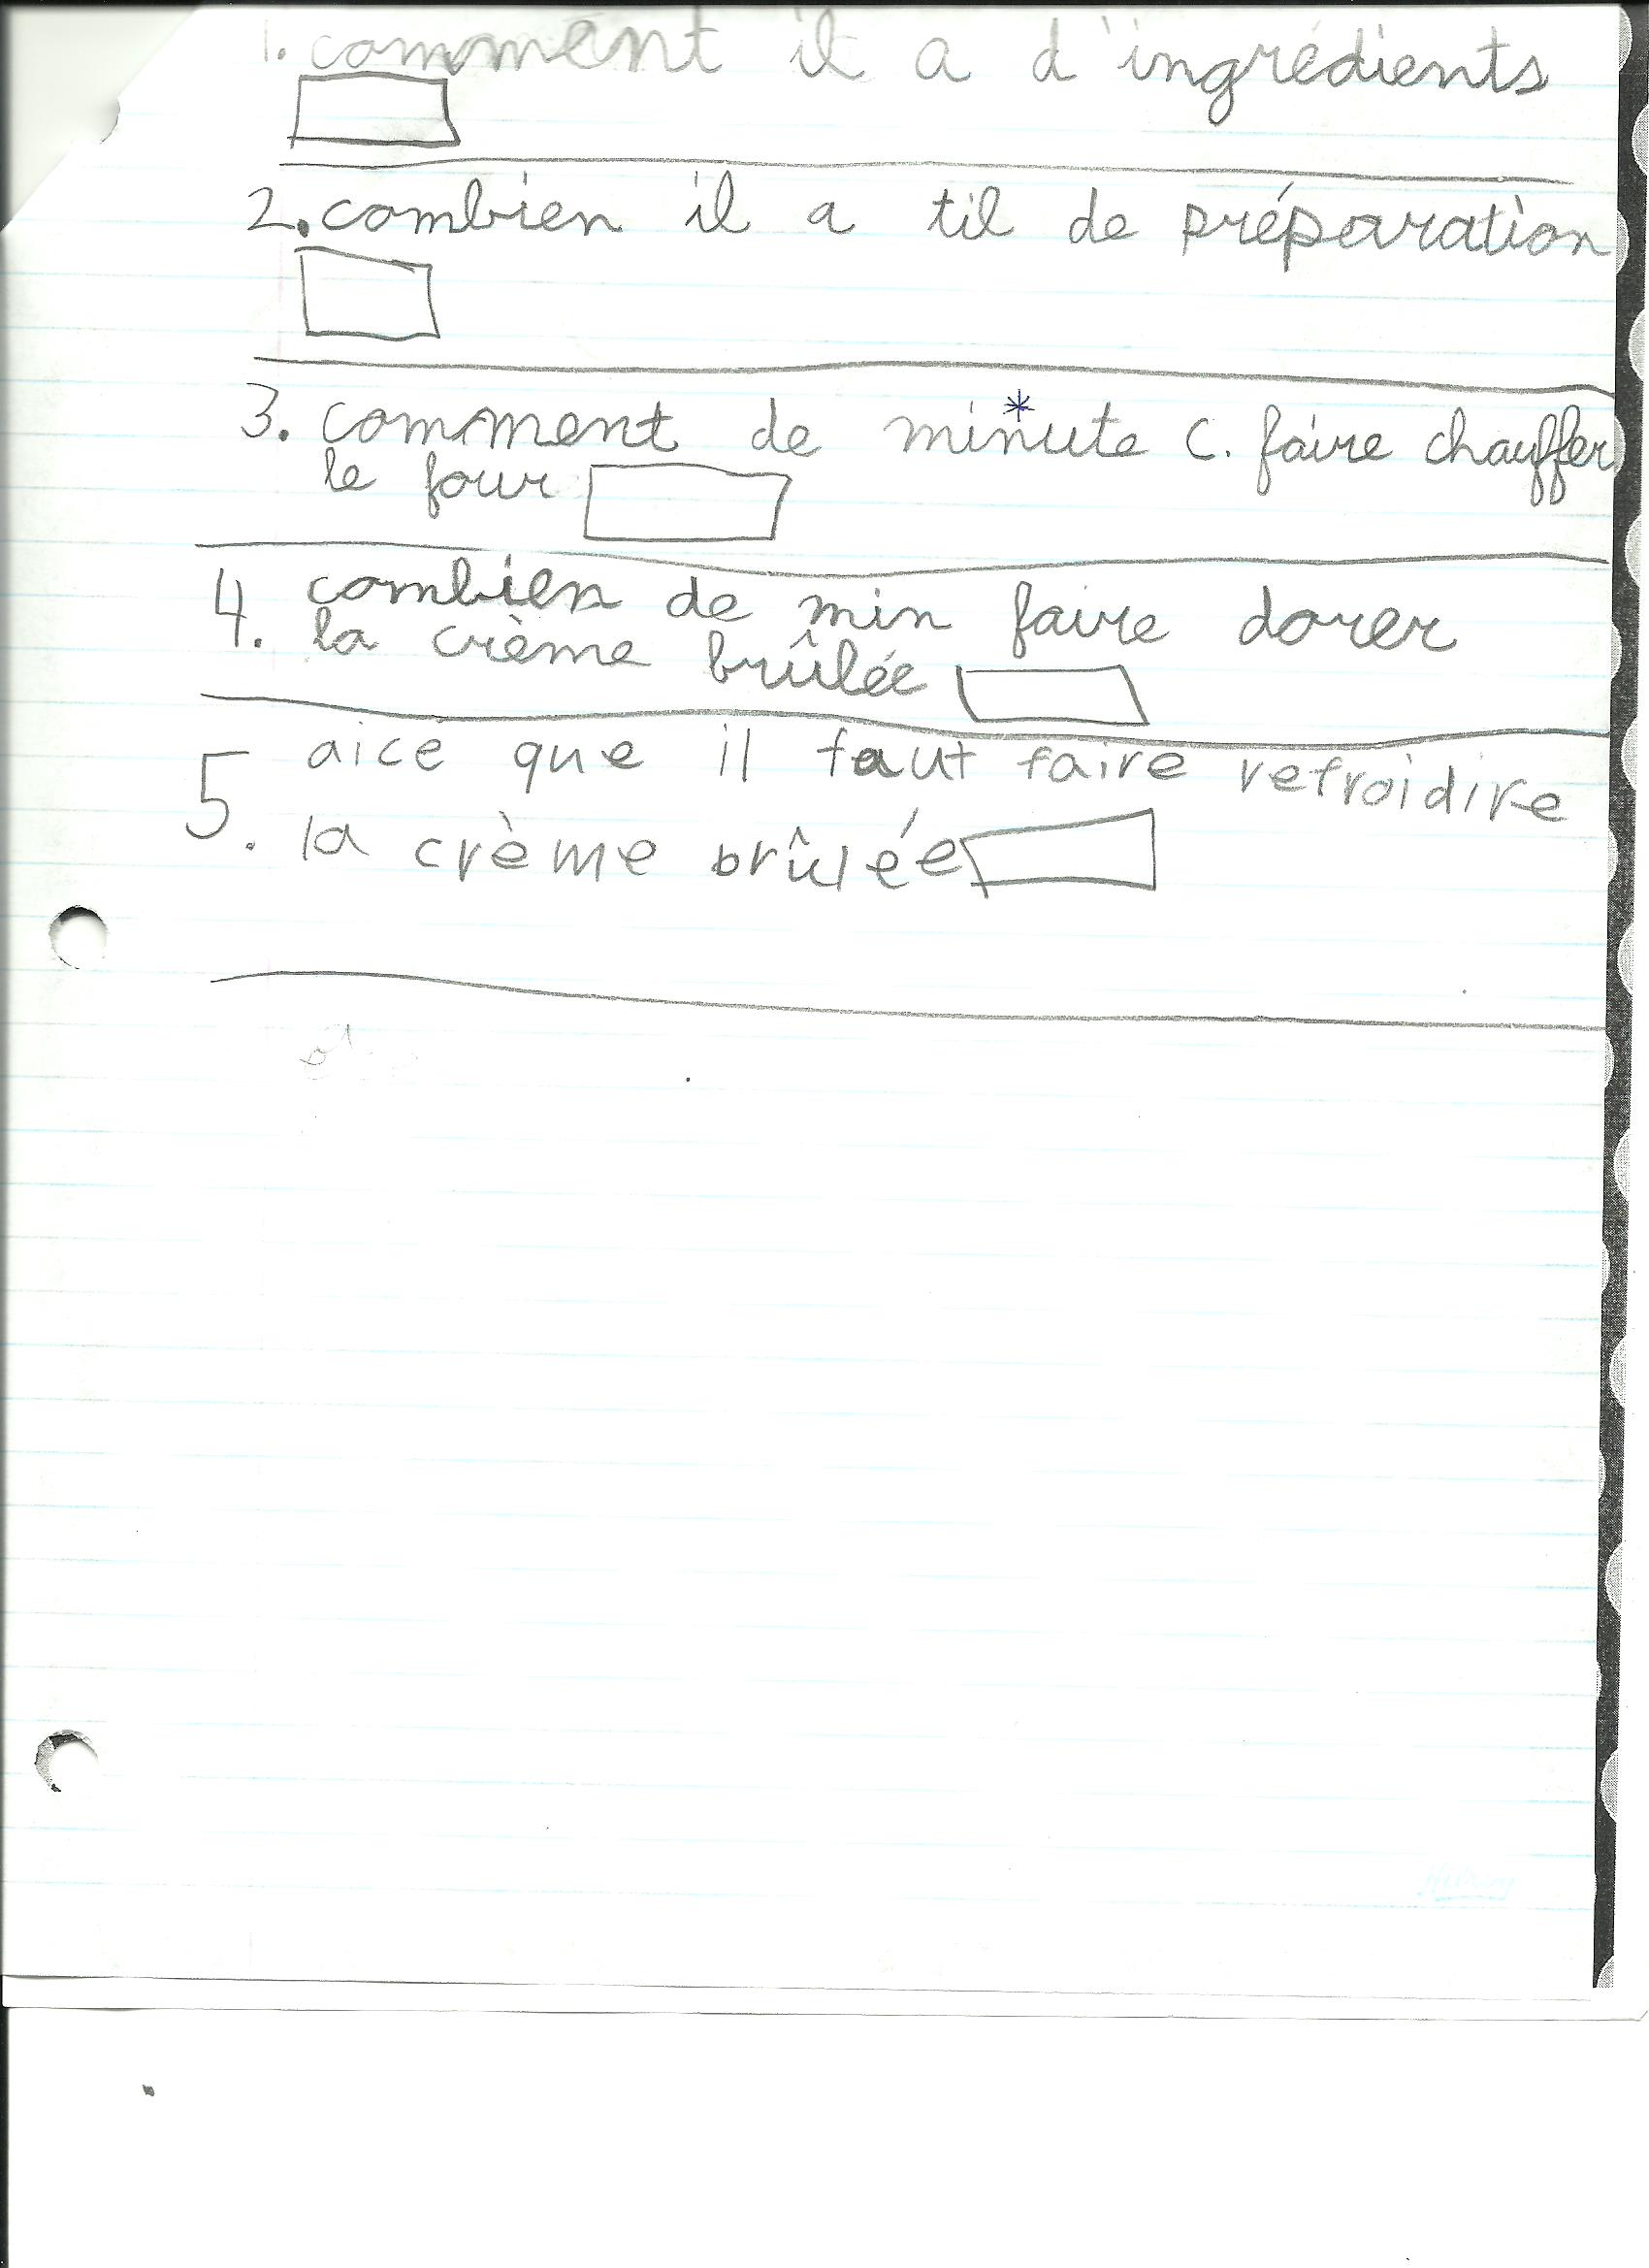 1. comment il a d'ingrédients
2. combien il a til de préparation
3. comment de minute c. faire chauffer
le four
4. combien de min faire dorer
la crème brûlée
5. aice que il faut faire refroidire
la crème brûlée